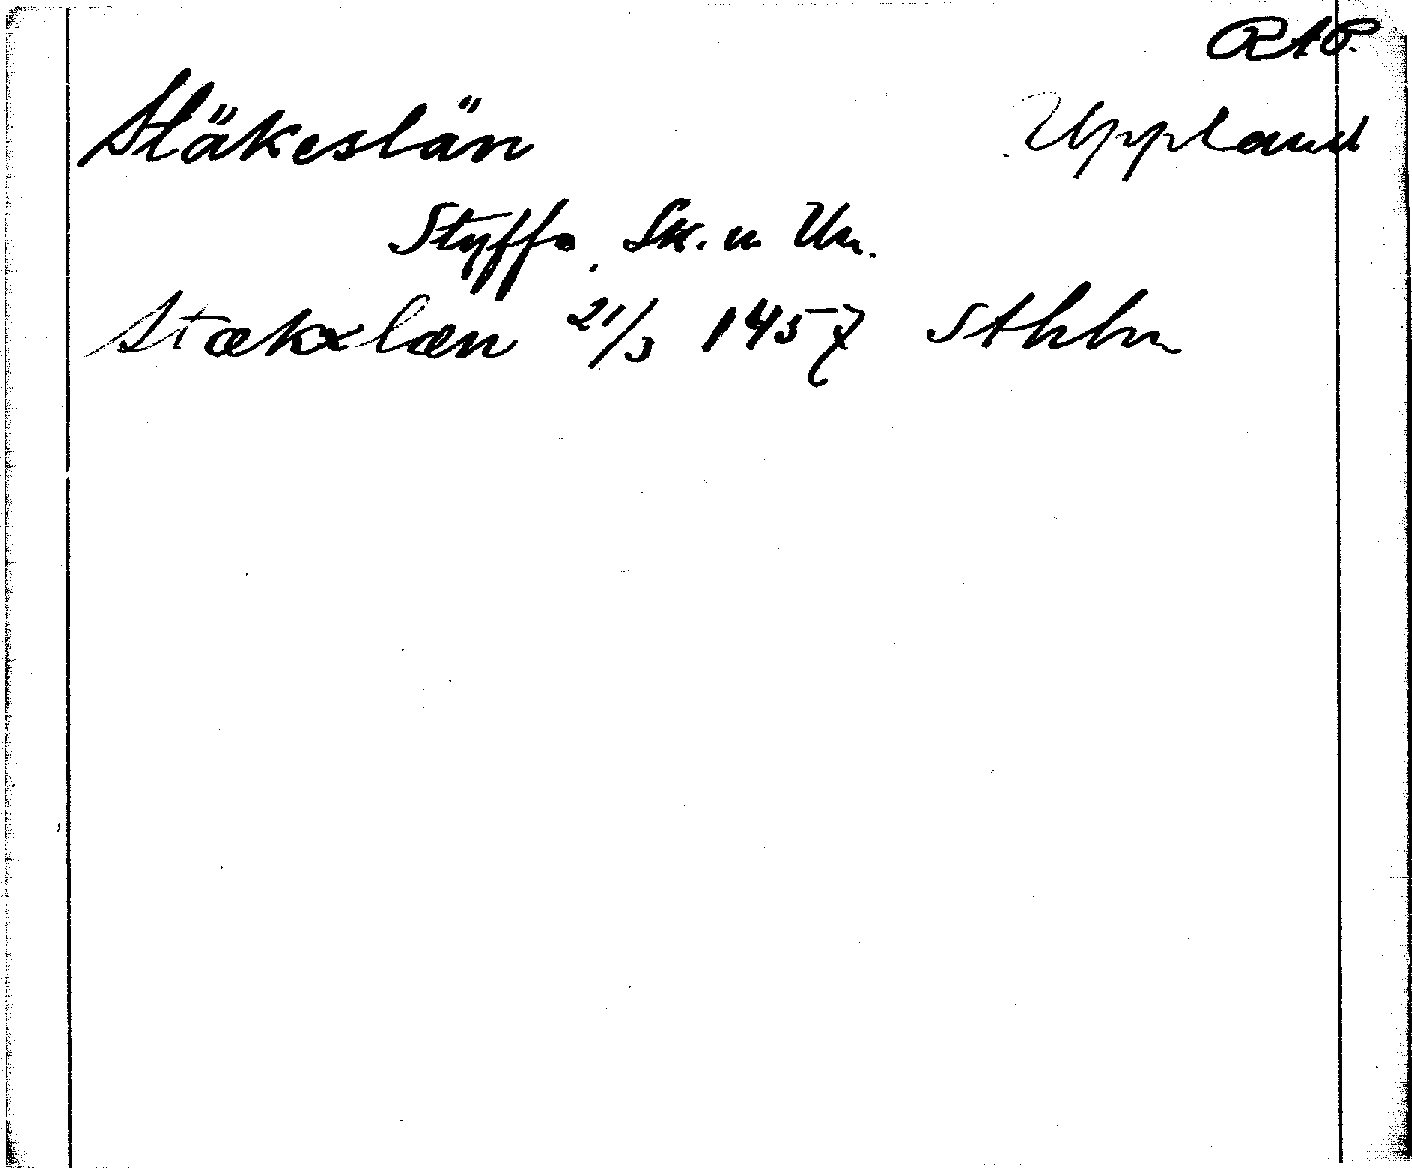 RAP.
Stäkeslän Uppland
Styffe. Sk. u Un.
Stækxlæn 21/3 1457 Sthlm